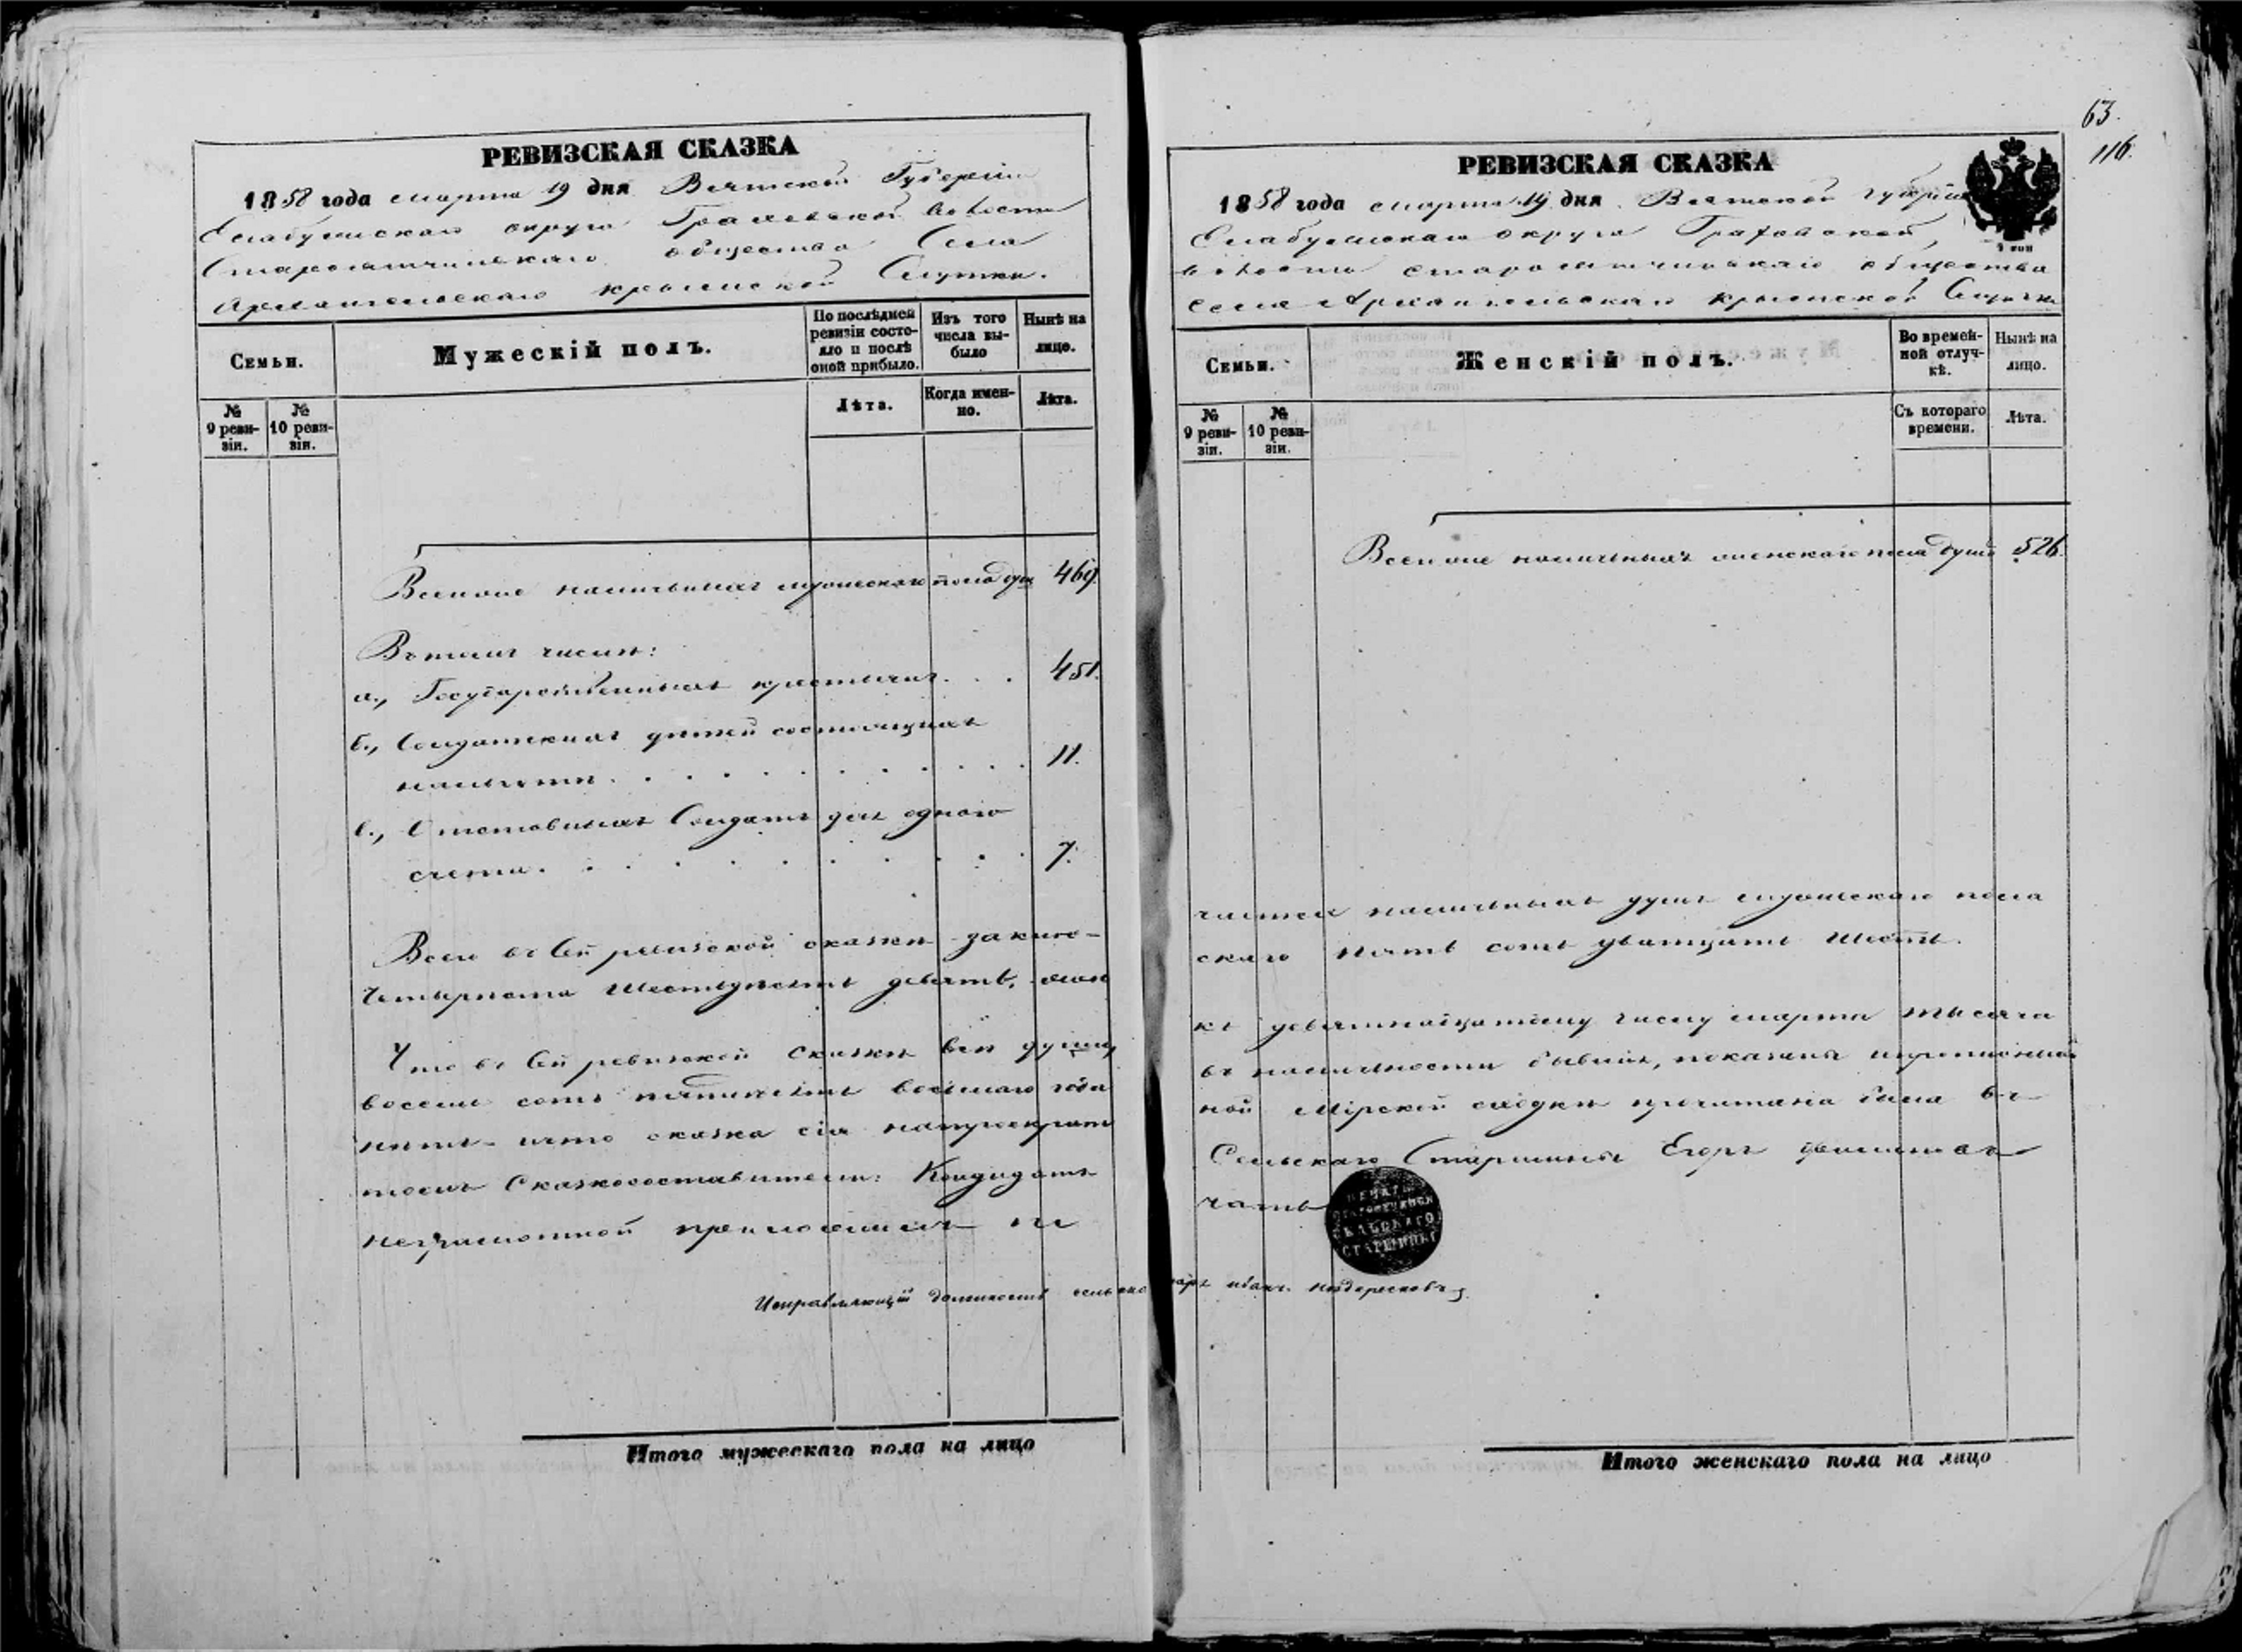 РЕВИЗСКАЯ СКАЗКА
1858 года марта 19 дня Вятской Губернiи
Елабужскаго округа Граховской волости
общества Села
Архангельскаго
Семьи.
Мужескiй полъ.
По послѣдней ревизiи состояло и послѣ оной прибыло.
Изъ того числа выбыло
Нынѣ на лицо.
№ 9 ревизiи.
№ 10 ревизiи.
Лѣта.
Когда именно.
Лѣта.
Всего наличныхъ мужескаго пола душъ 469.
Въ томъ числѣ:
а., Государственныхъ крестьянъ . . . 451.
б., Солдатскихъ дѣтей состоящихъ
11.
в., Отставныхъ Солдатъ для одного
счета . . . . . . . . . 7.
Всего въ сей ревизской сказкѣ заклю-
Четыреста шестьдесятъ девять, жен
Что въ сей ревизской сказкѣ всѣ души,
восемь сотъ пятьдесятъ восьмаго года
что сказка сiя
томъ Сказкосоставители: Кандидатъ
неграмотной приложилъ пе
Исправляющiй должность сельскаго
Итого мужескаго пола на лицо
63.
116.
РЕВИЗСКАЯ СКАЗКА
1858 года марта 19 дня Вятской губернiи
Елабужскаго округа Граховской
волости общества
села Архангельскаго
Семьи.
Женскiй полъ.
Во временной отлучкѣ.
Нынѣ на лицо.
№ 9 ревизiи.
№ 10 ревизiи.
Съ котораго времени.
Лѣта.
Всего наличныхъ женскаго пола душъ 526.
чается наличныхъ душъ мужескаго пола
скаго пять сотъ двадцать шесть.
къ девятнадцатому числу марта тысяча
въ наличности бывшiя, показаны
ной мiрской сходкѣ прочитана была въ
Сельскаго Старшины Егоръ
чать
ПЕЧАТЬ
СЕЛЬСКАГО
СТАРШИНЫ
Итого женскаго пола на лицо